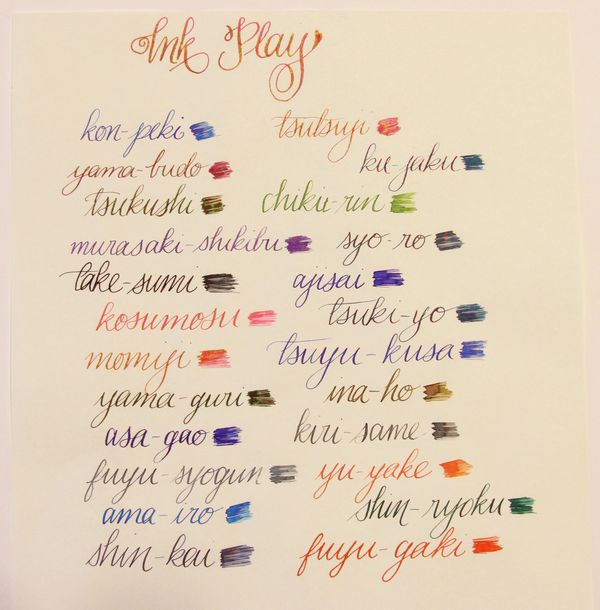 Ink Play
kon-peki tsutsuji
yama-budo ku-jaku
tsukushi chiku-rin
murasaki-shikibu syo-ro
take-sumi ajisai
kosumosu tsuki-yo
momiji tsuyu-kusa
yama-guri ina-ho
asa-gao kiri-same
fuyu-syogun yu-yake
ama-iro shin-ryoku
shin-kai fuyu-gaki